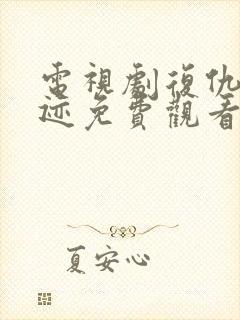 電視劇復仇
迹免費觀看
夏安心